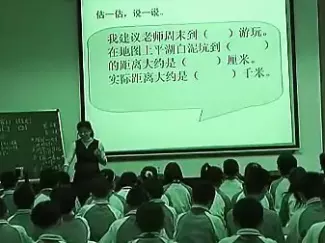 估一估，说一说。
我建议老师周末到（ ）游玩。
在地图上平湖白泥坑到（ ）
的距离大约是（ ）厘米。
实际距离大约是（ ）千米。